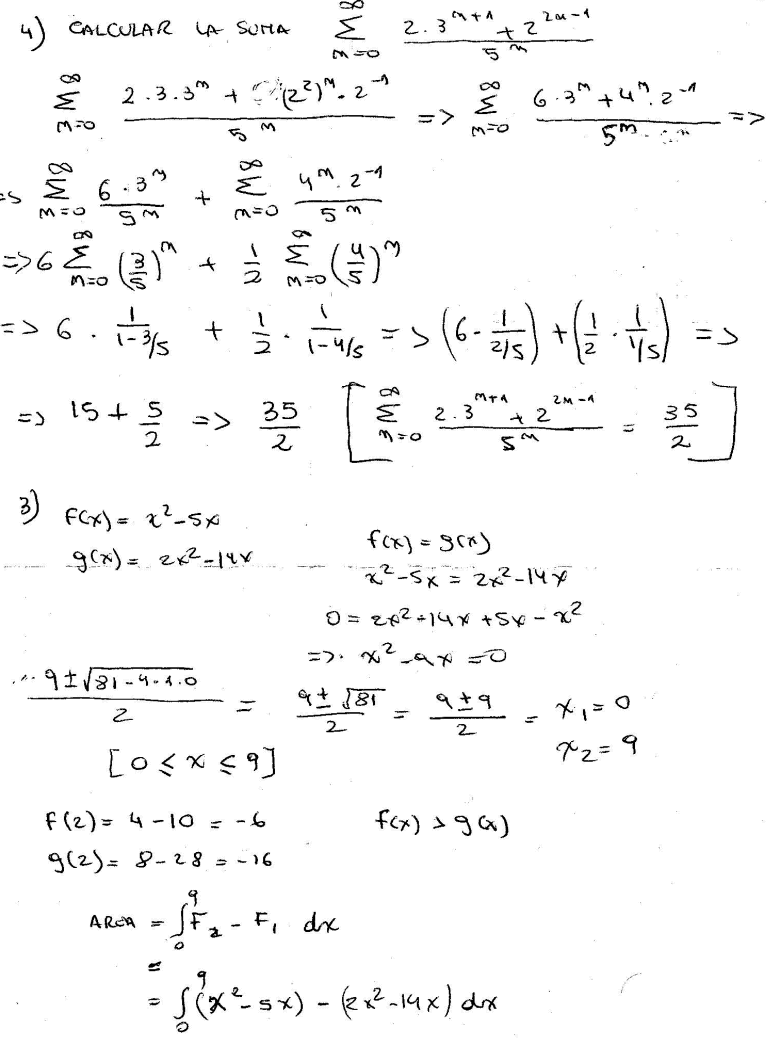 4) CALCULAR LA SUMA ∞ Σ n=0 (2.3^(n+1) + 2^(2n-1)) / 5^n
∞ Σ n=0 (2.3.3^n + (2²)^n. 2^-1) / 5^n => ∞ Σ n=0 (6.3^n + 4^n. 2^-1) / 5^n =>
=> ∞ Σ n=0 (6.3^n) / 5^n + ∞ Σ n=0 (4^n. 2^-1) / 5^n
=> 6 ∞ Σ n=0 (3/5)^n + 1/2 ∞ Σ n=0 (4/5)^n
=> 6 . 1/(1-3/5) + 1/2 . 1/(1-4/5) => (6. 1/(2/5)) + (1/2 . 1/(1/5)) =>
=> 15 + 5/2 => 35/2 [∞ Σ n=0 (2.3^(n+1) + 2^(2n-1)) / 5^n = 35/2]
3) f(x) = x²-5x
g(x) = 2x²-14x
f(x) = g(x)
x²-5x = 2x²-14x
0 = 2x²-14x +5x - x²
=>. x²-9x =0
(9±√(81-4.1.0)) / 2 = (9± √81) / 2 = (9±9) / 2 = x₁=0
x₂=9
[0 ≤ x ≤ 9]
f(2) = 4-10 = -6 f(x) > g(x)
g(2) = 8-28 = -16
AREA = ∫₀⁹ F₂ - F₁ dx
=
= ∫₀⁹ (x²-5x) - (2x²-14x) dx